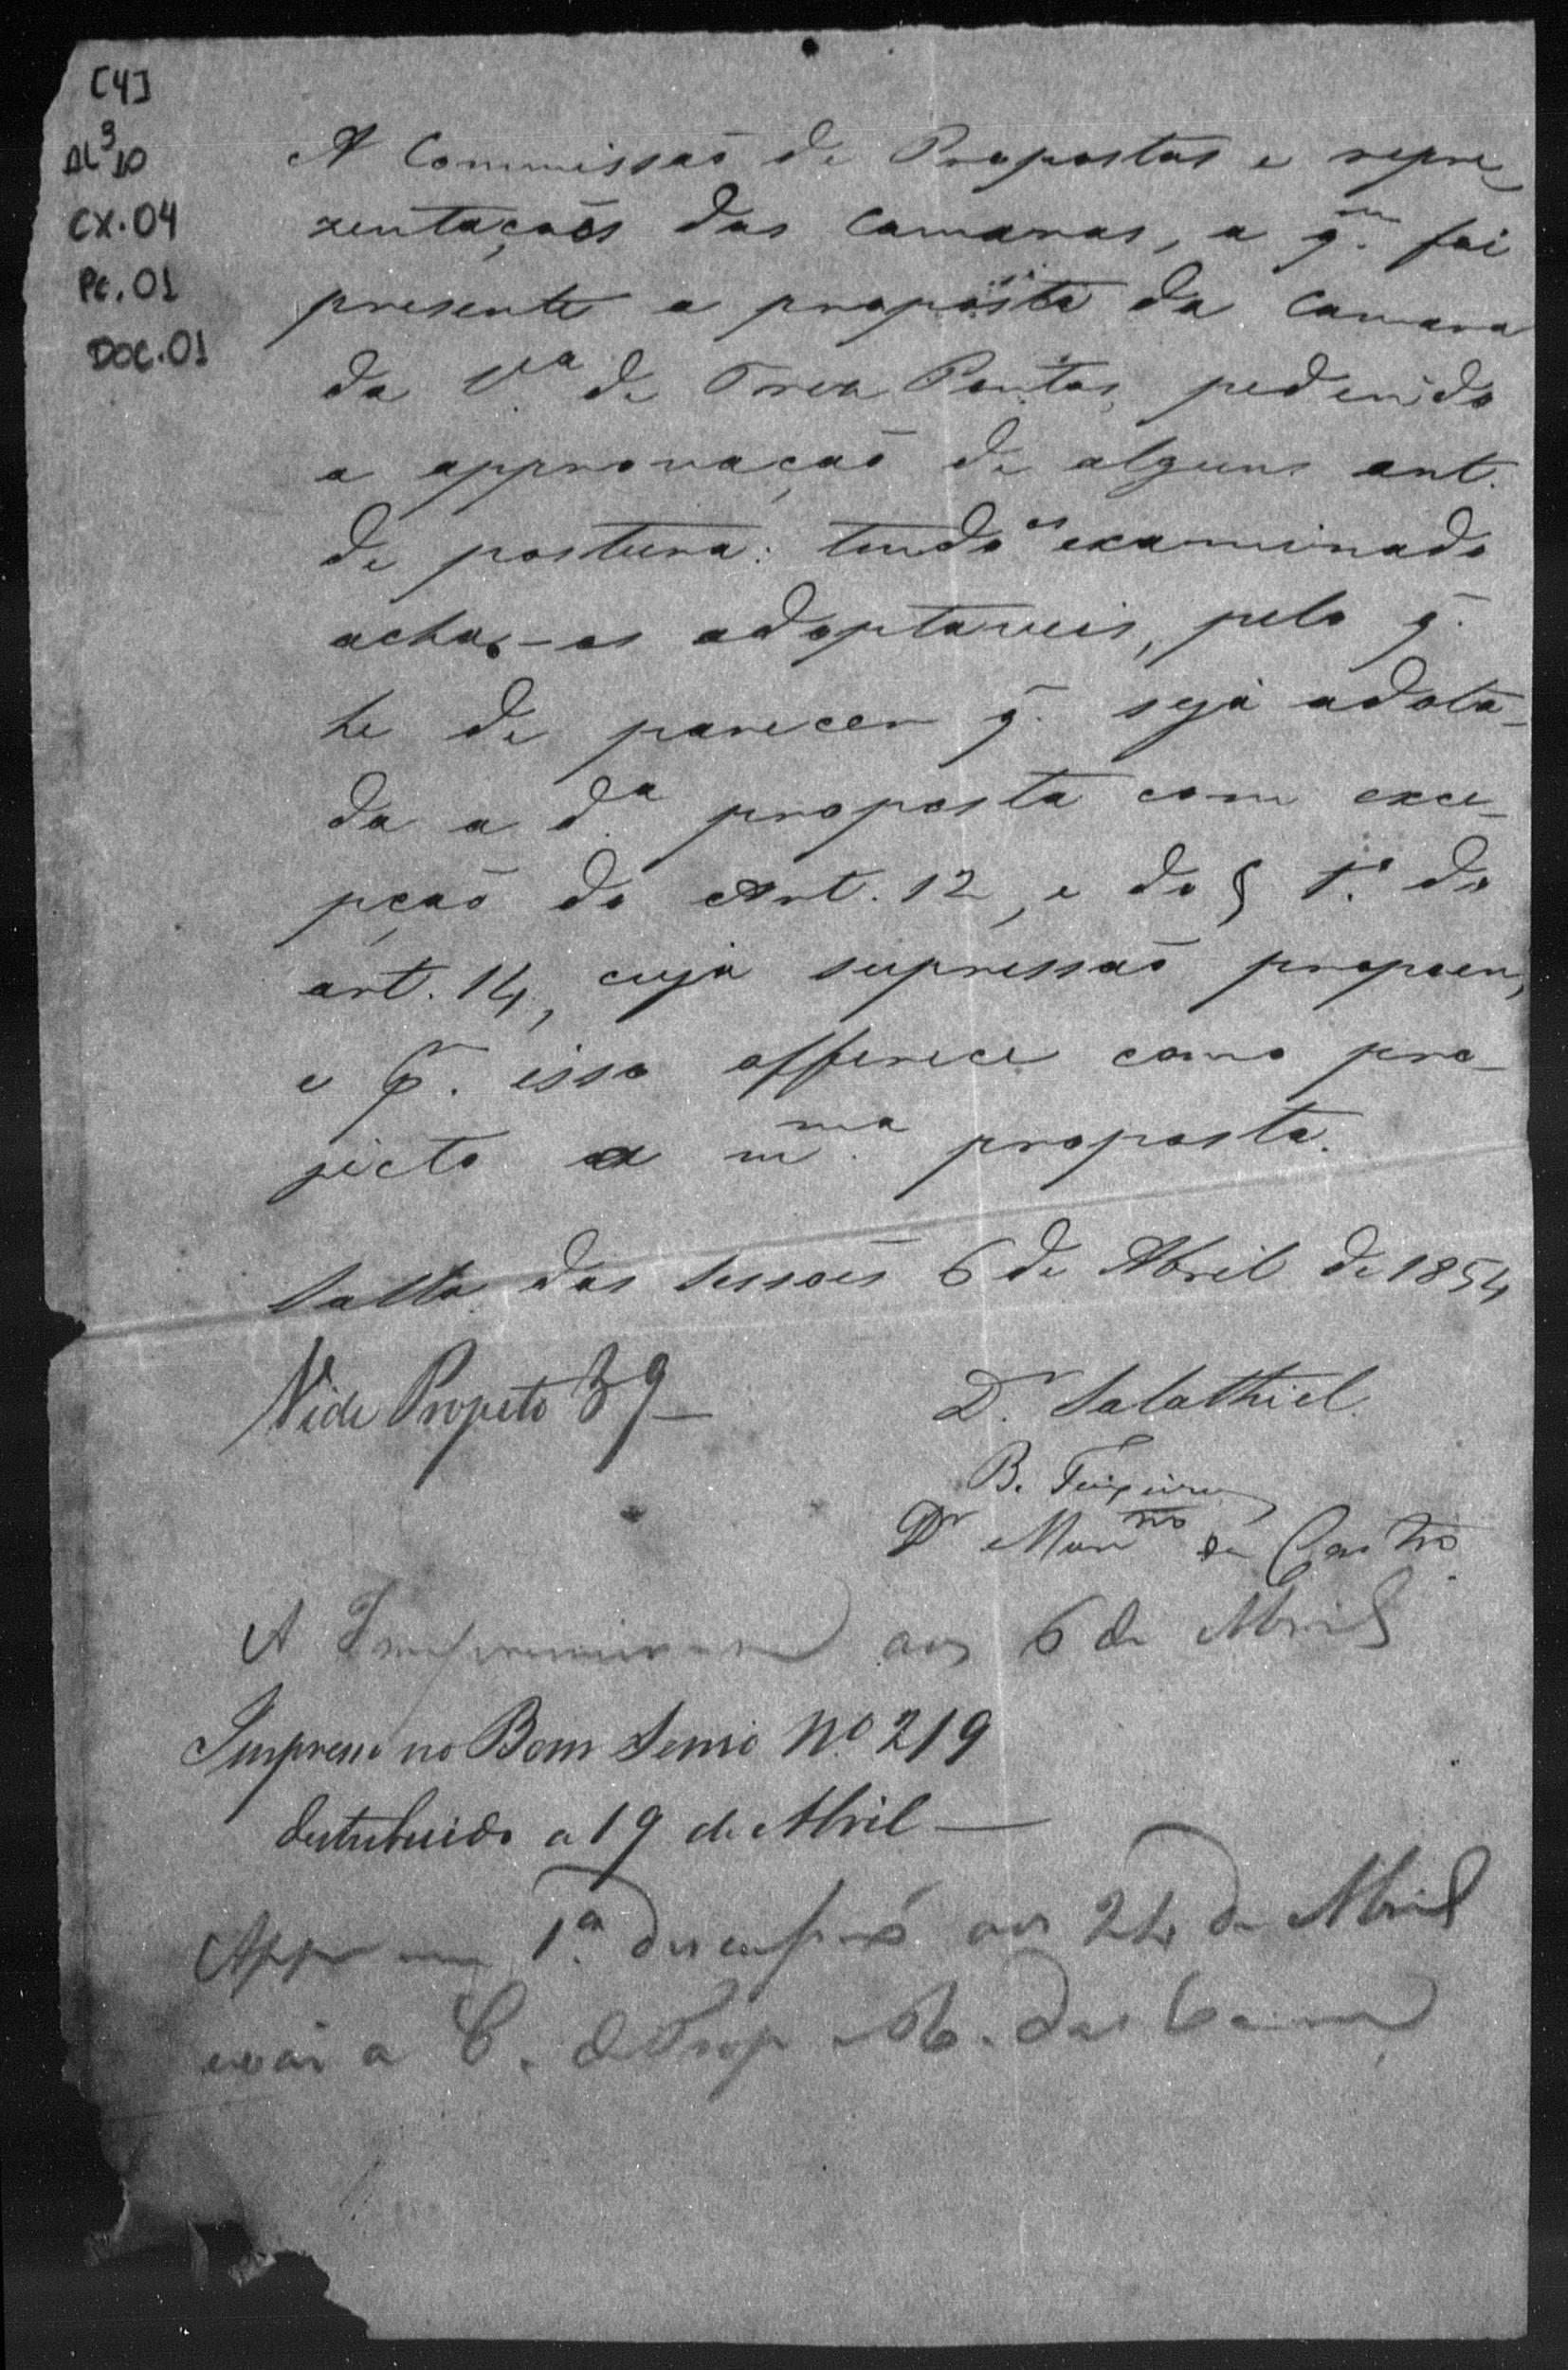 [4]
AL 3 10
CX.04
PC.01
DOC.01
A Commissaõ de Propostas e repre-
zentaçoẽs das Camaras, a q.m foi
presente a proposta da Camara
da V.a de Tres Pontas, pedindo
a approvaçaõ de alguns art.
de postura: tendo os examinado
acha-os adoptaveis, pelo q.
he de parecer q. seja adota-
da a d.a proposta com exce-
pçaõ do Art. 12, e do § 1.º do
art. 14, cuja supressaõ propoem,
e p.r isso offerece como pro-
jecto a m.ma proposta.
Salla das Sessoẽs 6 de Abril de 1854
Vide Projeto 39
D.r Salathiel
B. Teixeira
D.r Mar.no de Castro
A Imprimir aos 6 de Abril
Impresso no Bom Senso Nº 219
destribuido a 19 de Abril
App em 1.a discussaõ aos 24 de Abril
e vai a C. de Prop R. das Camar